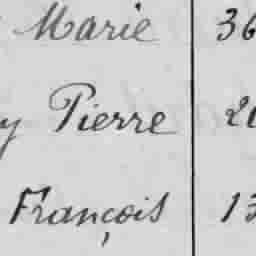 Marie 36
y Pierre 20
François 13